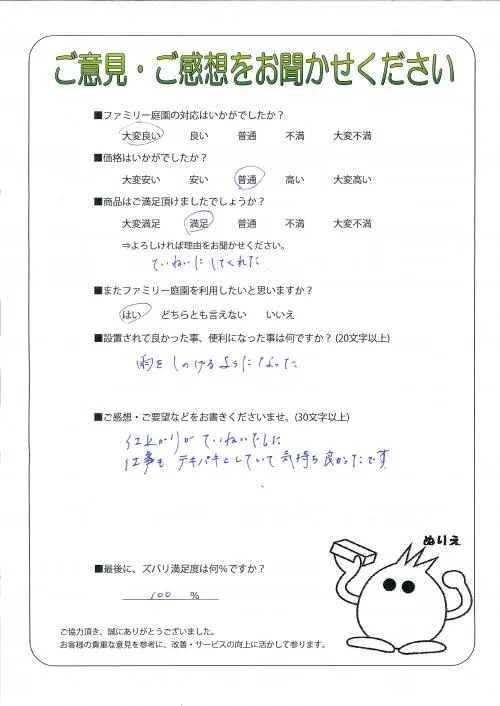 ご意見・ご感想をお聞かせください
■ファミリー庭園の対応はいかがでしたか？
大変良い 良い 普通 不満 大変不満
■価格はいかがでしたか？
大変安い 安い 普通 高い 大変高い
■商品はご満足頂けましたでしょうか？
大変満足 満足 普通 不満 大変不満
⇒よろしければ理由をお聞かせください。
ていねいにしてくれた
■またファミリー庭園を利用したいと思いますか？
はい どちらとも言えない いいえ
■設置されて良かった事、便利になった事は何ですか？(20文字以上)
雨をしのげるようになった
■ご感想・ご要望などをお書きくださいませ。(30文字以上)
仕上がりがていねいだしに
仕事も テキパキとしていて 気持ち良かったです
ぬりえ
■最後に、ズバリ満足度は何％ですか？
100 ％
ご協力頂き、誠にありがとうございました。
お客様の貴重な意見を参考に、改善・サービスの向上に活かして参ります。